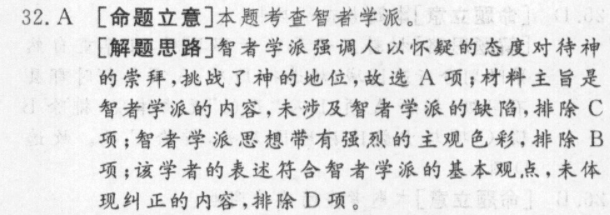 32. A [命题立意]本题考查智者学派。
[解题思路]智者学派强调人以怀疑的态度对待神
的崇拜,挑战了神的地位,故选 A 项;材料主旨是
智者学派的内容,未涉及智者学派的缺陷,排除 C
项;智者学派思想带有强烈的主观色彩,排除 B
项;该学者的表述符合智者学派的基本观点,未体
现纠正的内容,排除 D 项。